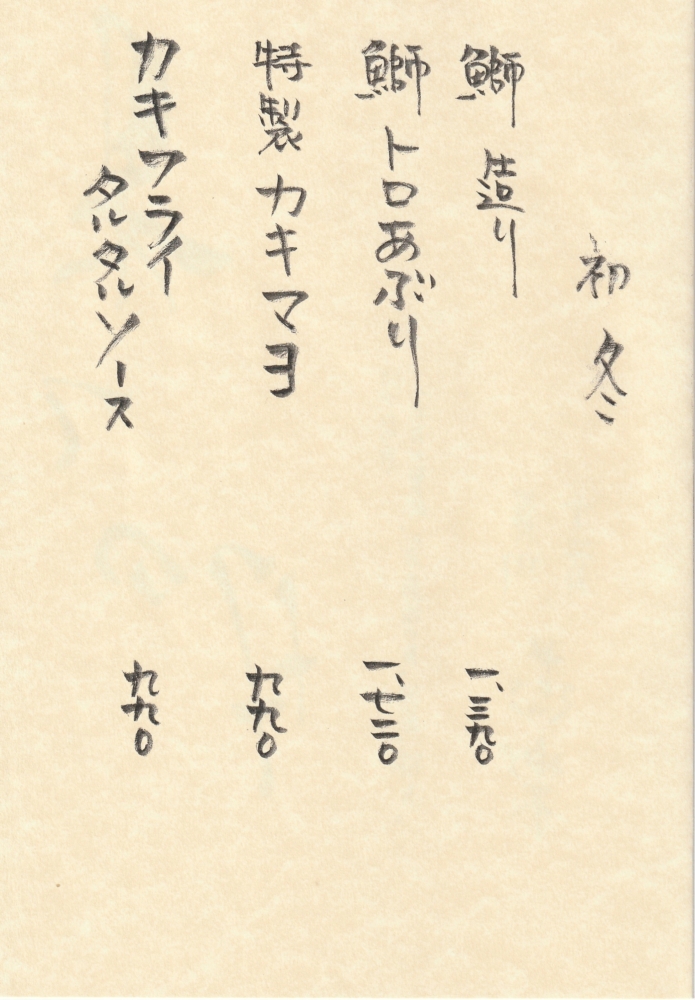 初冬
鰤 造り
一、三九〇
鰤 トロあぶり
一、七二〇
特製 カキマヨ
九九〇
カキフライ
タルタルソース
九九〇